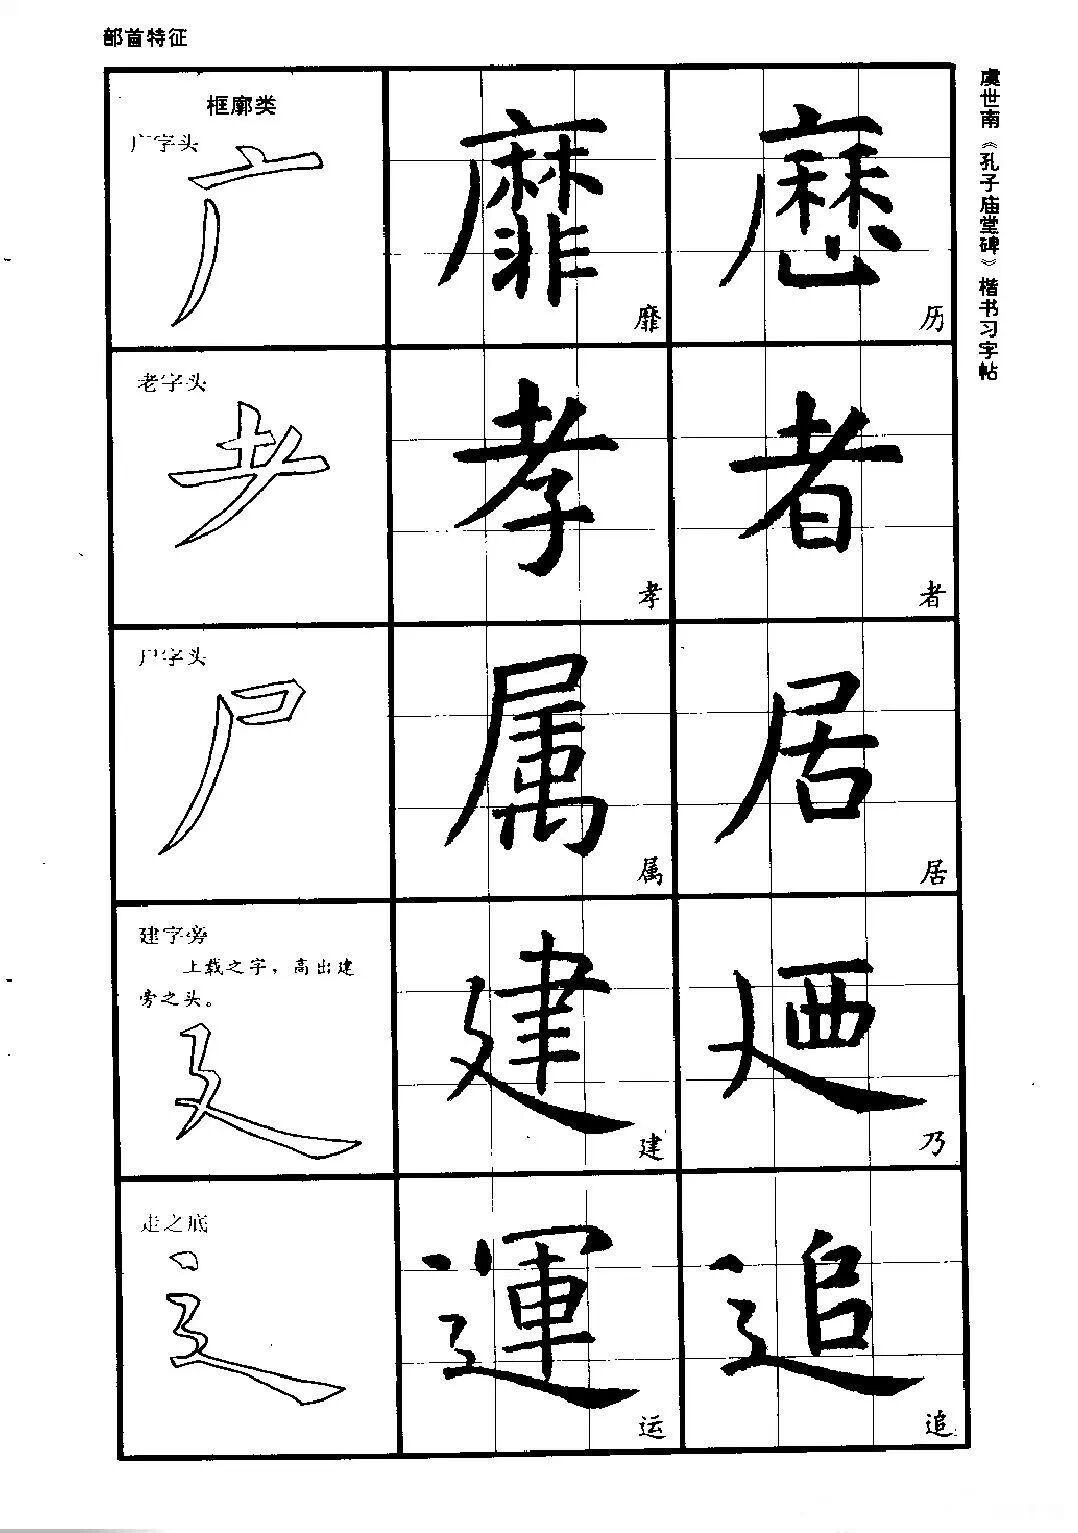 部首特征
虞世南《孔子庙堂碑》楷书习字帖
框廓类
广字头
靡
靡
历
老字头
孝
孝
者
者
尸字头
属
属
居
居
建字旁
上载之字，高出建
旁之头。
建
建
廼
乃
走之底
運
运
追
追